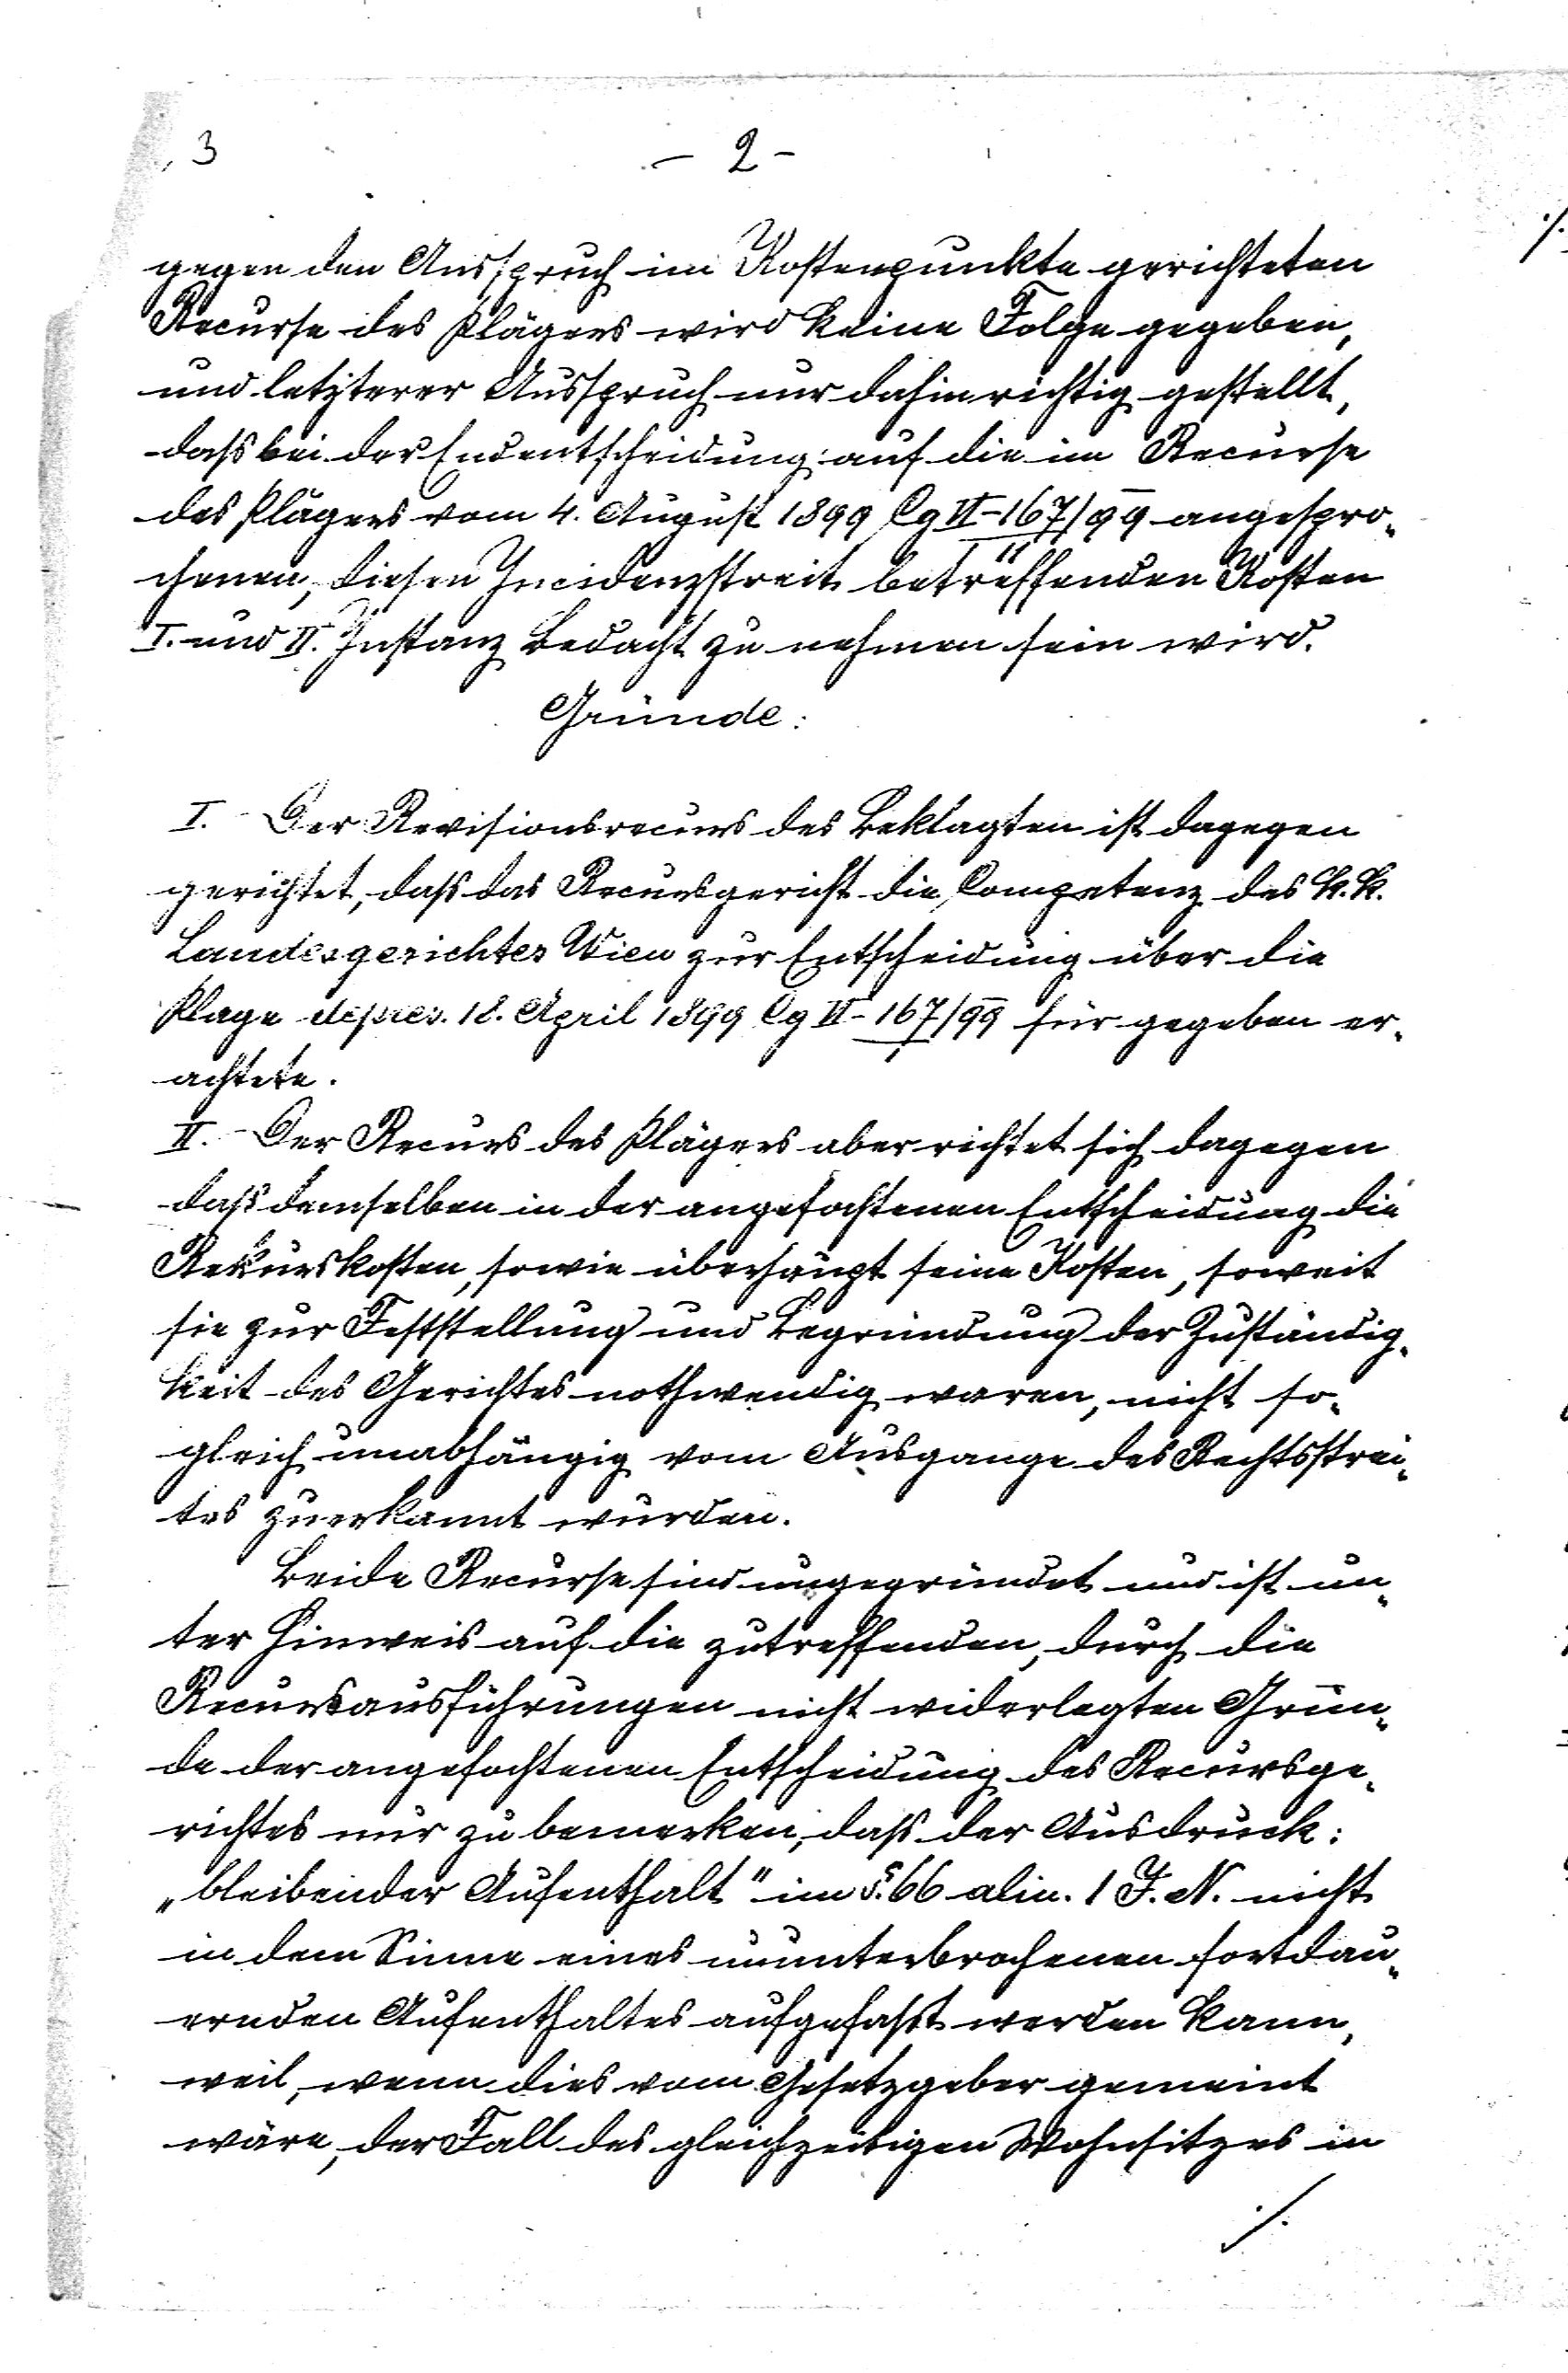 3
- 2 -
gegen den Ausspruch im Kostenpunkte gerichteten
Recurse des Klägers wird keine Folge gegeben,
und letzterer Ausspruch nur dahin richtig gestellt,
daß bei der Endentscheidung auf die im Recurse
des Klägers vom 4. August 1899 Cg VI-167/99 angespro-
11
chenen, diesen Incidenzstreit betreffenden Kosten
I. und II. Instanz Bedacht zu nehmen sein wird.
Gründe:
I. Der Revisionsrecurs des Beklagten ist dagegen
gerichtet, daß das Recursgericht die Competenz des k. k.
Landesgerichtes Wien zur Entscheidung über die
Klage de präs. 18. April 1899 Cg VI-167/99 für gegeben er-
1
achtete.
II. Der Recurs des Klägers aber richtet sich dagegen
daß demselben in der angefochtenen Entscheidung die
Rekurskosten, sowie überhaupt seine Kosten, soweit
sie zur Feststellung und Begründung der Zuständig-
keit des Gerichtes nothwendig waren, nicht so-
gleich unabhängig vom Ausgange des Rechtsstrei-
tes zuerkannt wurden.
Beide Recurse sind ungegründet und ist un-
ter Hinweis auf die zutreffenden, durch die
Recursausführungen nicht widerlegten Grün-
de der angefochtenen Entscheidung des Recursge-
richtes nur zu bemerken, daß der Ausdruck:
„bleibender Aufenthalt" im §. 66 alin. 1 J. N. nicht
in dem Sinne eines ununterbrochenen fortdau-
ernden Aufenthaltes aufgefaßt werden kann,
weil, wenn dies vom Gesetzgeber gemeint
wäre, der Fall des gleichzeitigen Wohnsitzes in
./.